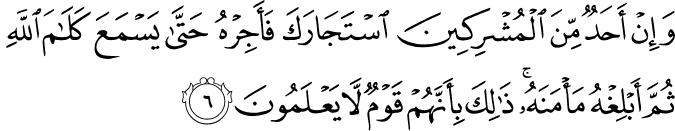 وَإِنْ أَحَدٌ مِّنَ ٱلْمُشْرِكِينَ ٱسْتَجَارَكَ فَأَجِرْهُ حَتَّىٰ يَسْمَعَ كَلَٰمَ ٱللَّهِ
ثُمَّ أَبْلِغْهُ مَأْمَنَهُۥ ۚ ذَٰلِكَ بِأَنَّهُمْ قَوْمٌ لَّا يَعْلَمُونَ ٦